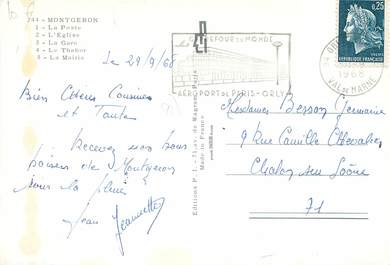 244 - MONTGERON
1 - La Poste
2 - L'Eglise
3 - La Gare
4 - Le Thabor
5 - La Mairie
Le 29/9/68
Bien Chères Cousines
et Tante
Recevez nos bons
baisers de Montgeron
sous la pluie
Jean Jeannette
Editions P. I. - 71, av. de Wagram, Paris
Made in France
CARREFOUR DU MONDE
AEROPORT DE PARIS-ORLY
94
1968
VAL DE MARNE
0,25
REPUBLIQUE FRANCAISE
Mesdames Besson Germaine
9 Rue Camille Chevalier
Chalon sur Saône
71